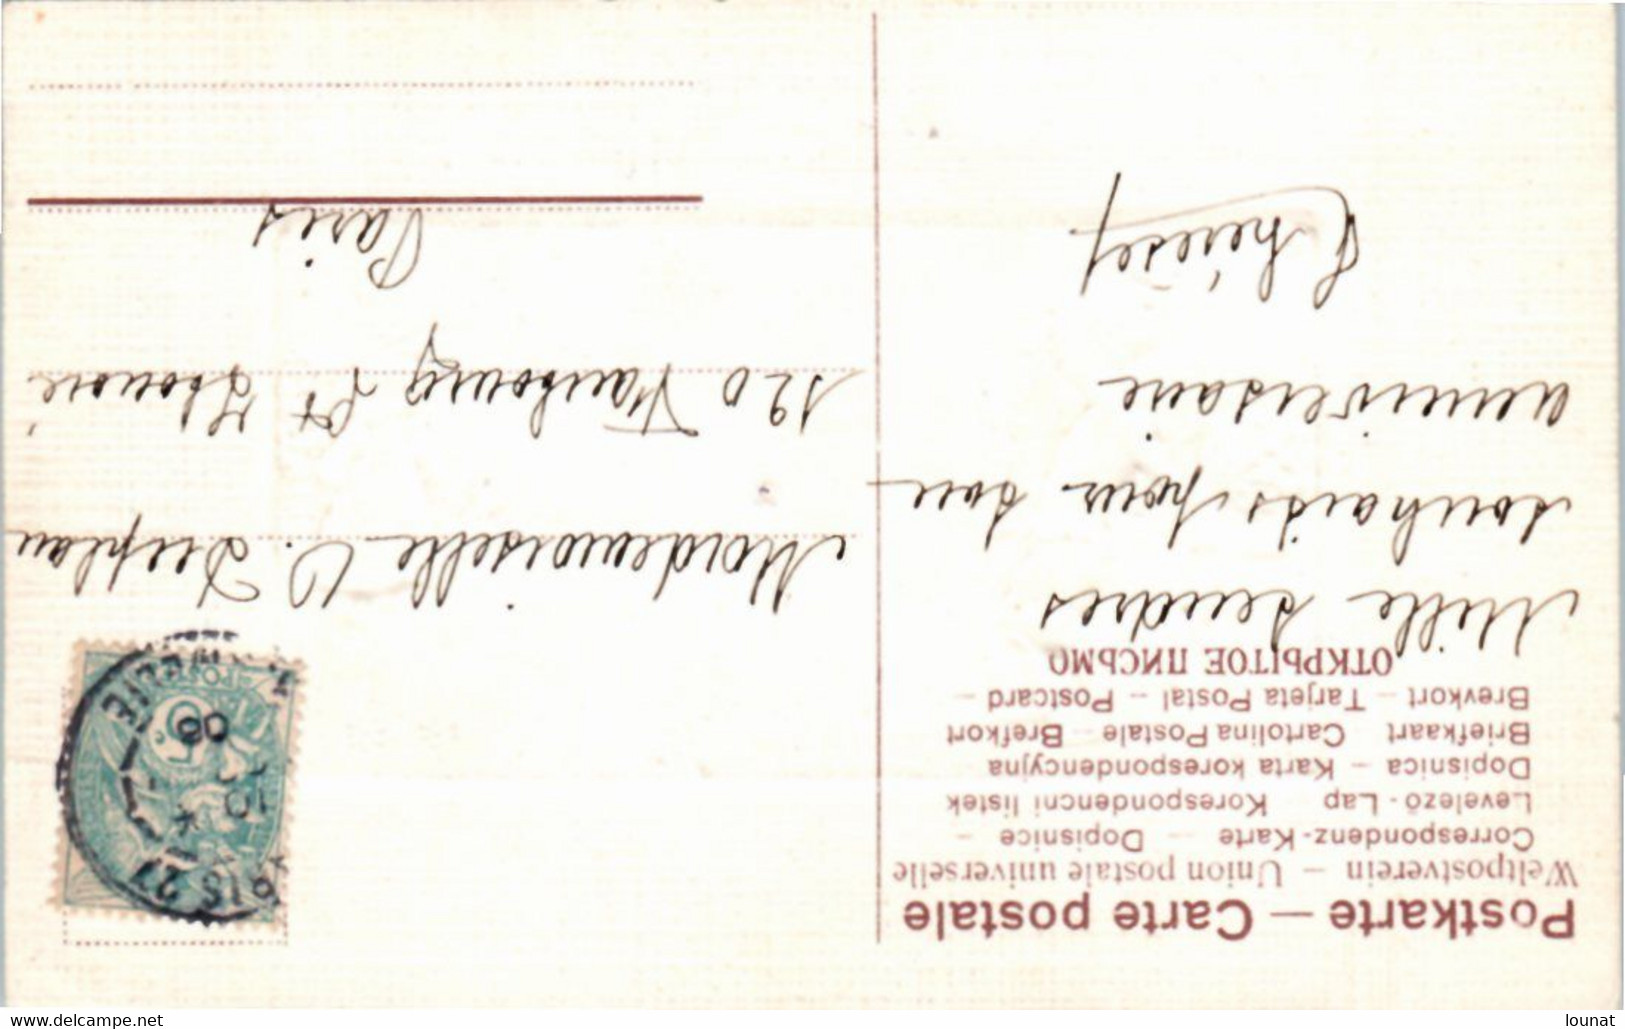 Postkarte — Carte postale
Weltpostverein — Union postale universelle
Correspondenz-Karte — Dopisnice —
Levelező-Lap — Korespondencni listek
Dopisnica — Karta korespondencyjna
Briefkaart — Cartolina Postale — Brefkort
Brevkort — Tarjeta Postal — Postcard —
ОТКРЫТОЕ ПИСЬМО
Mille tendres
souhaits pour ton
anniversaire
Thérèse
Mademoiselle
120 Faubourg St Honoré
Paris
POSTES
5c
10
06
www.delcampe.net
lounat